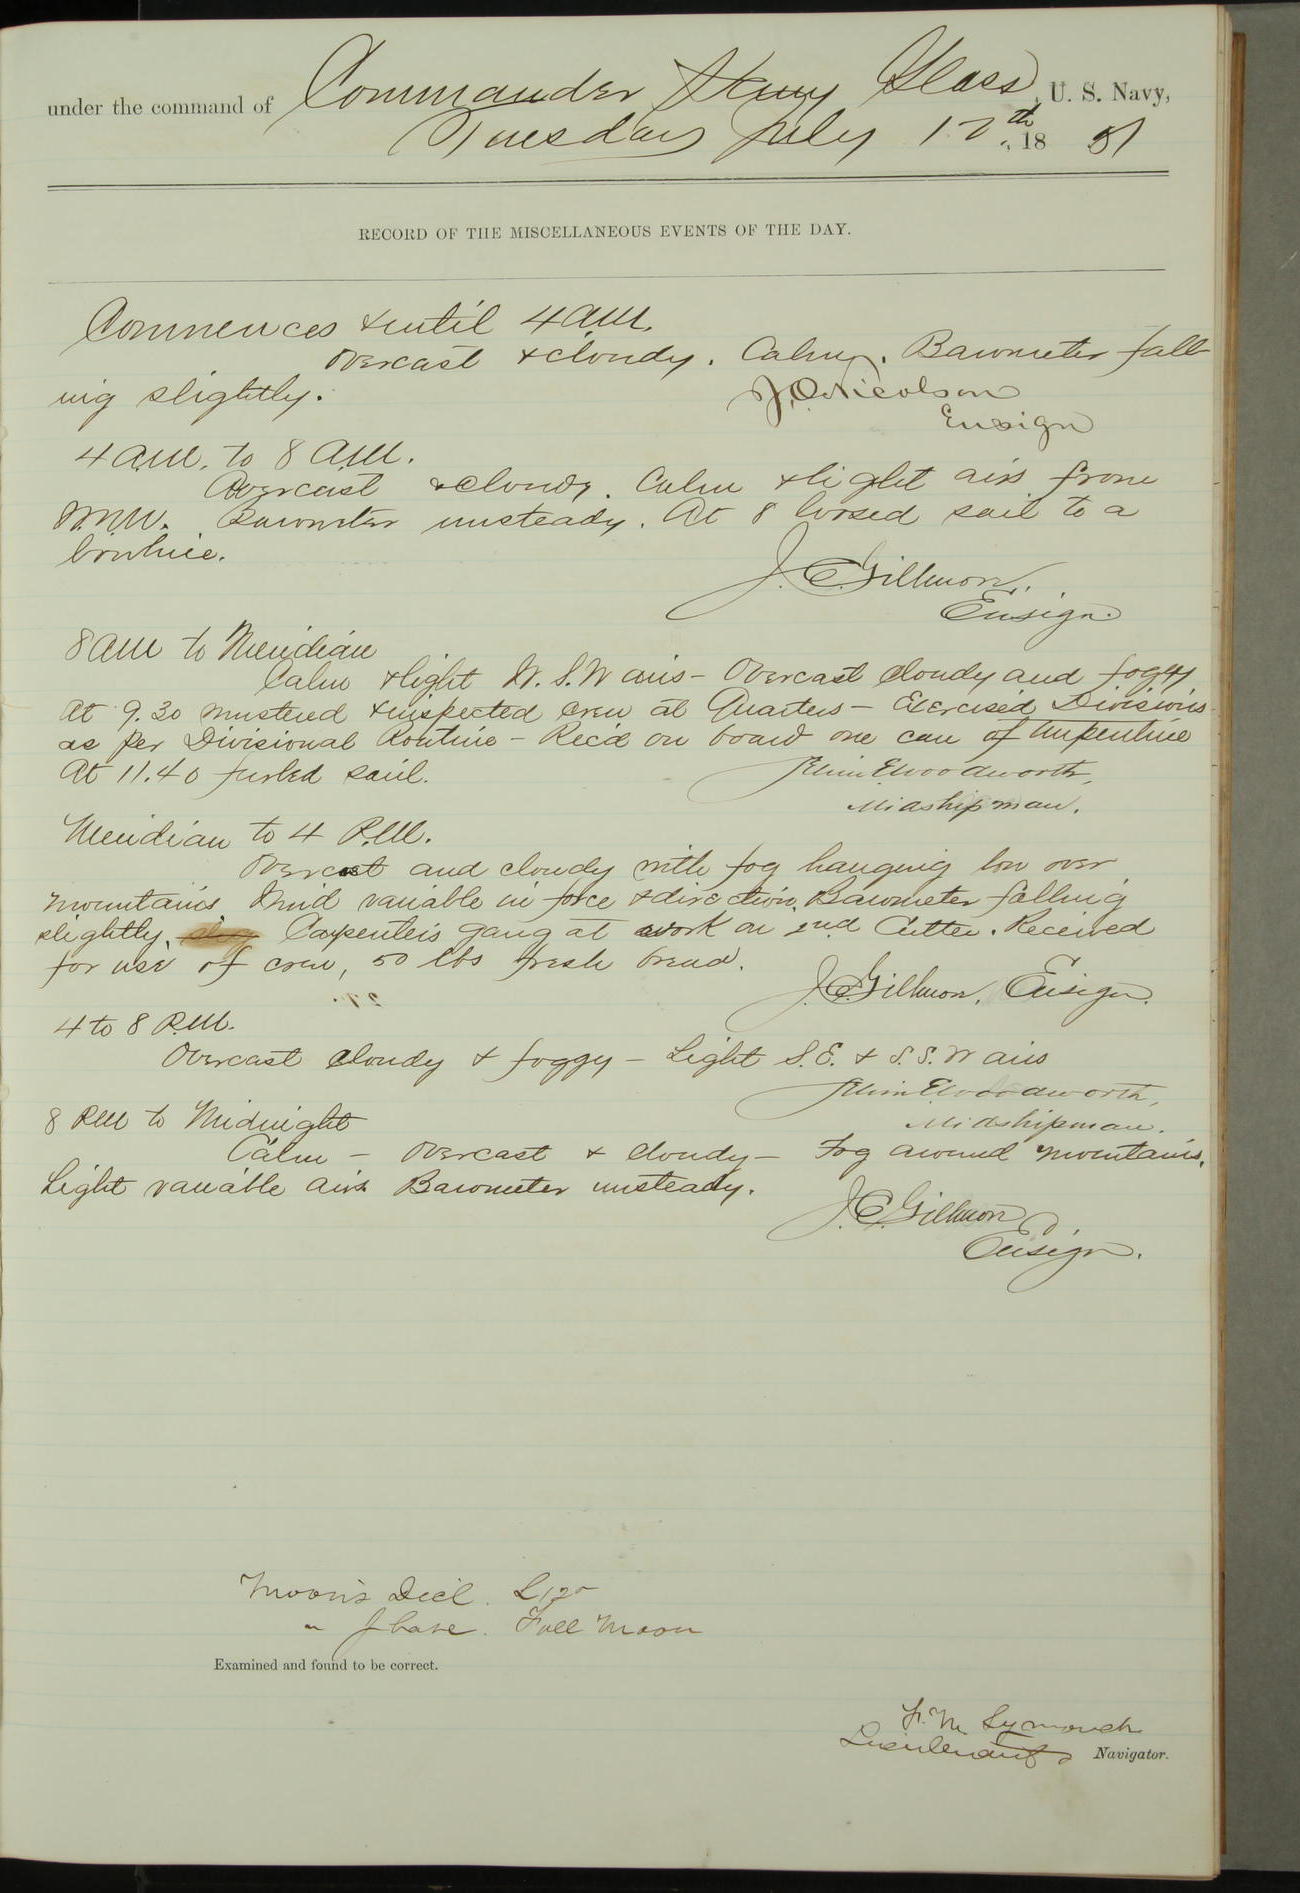 under the command of Commander Henry Glass, U. S. Navy,
Tuesday July 12th, 1881
RECORD OF THE MISCELLANEOUS EVENTS OF THE DAY.
Commences & until 4 A.M.
Overcast & cloudy. Calm. Barometer fall-
ing slightly.
J.O. Nicolson
Ensign
4 A.M. to 8 A.M.
Overcast & cloudy. Calm & light airs from
N.N.W. Barometer unsteady. At 8 loosed sail to a
bowline.
J.C. Gillmore.
Ensign.
8 AM to Meridian
Calm & light W.S.W airs - Overcast cloudy and foggy
At 9.30 mustered & inspected crew at Quarters - Exercised Divisions
as per Divisional Routine - Rec'd on board one can of turpentine
At 11.40 furled sail.
Selim E. Woodworth,
Midshipman.
Meridian to 4 P.M.
Overcast and cloudy with fog hanging low over
mountains Wind variable in force & direction. Barometer falling
slightly. Carpenter's gang at work on 2nd Cutter. Received
for use of crew, 50 lbs fresh bread.
J.C. Gillmore, Ensign.
4 to 8 P.M.
Overcast cloudy & foggy - Light S.E. & S.S.W airs
Selim E. Woodworth,
Midshipman.
8 PM to Midnight
Calm - Overcast & cloudy - Fog around mountains.
Light variable airs Barometer unsteady.
J.C. Gillmore
Ensign.
Moon's Decl.
" Phase. Full Moon
Examined and found to be correct.
F. M. Symonds
Lieutenant Navigator.